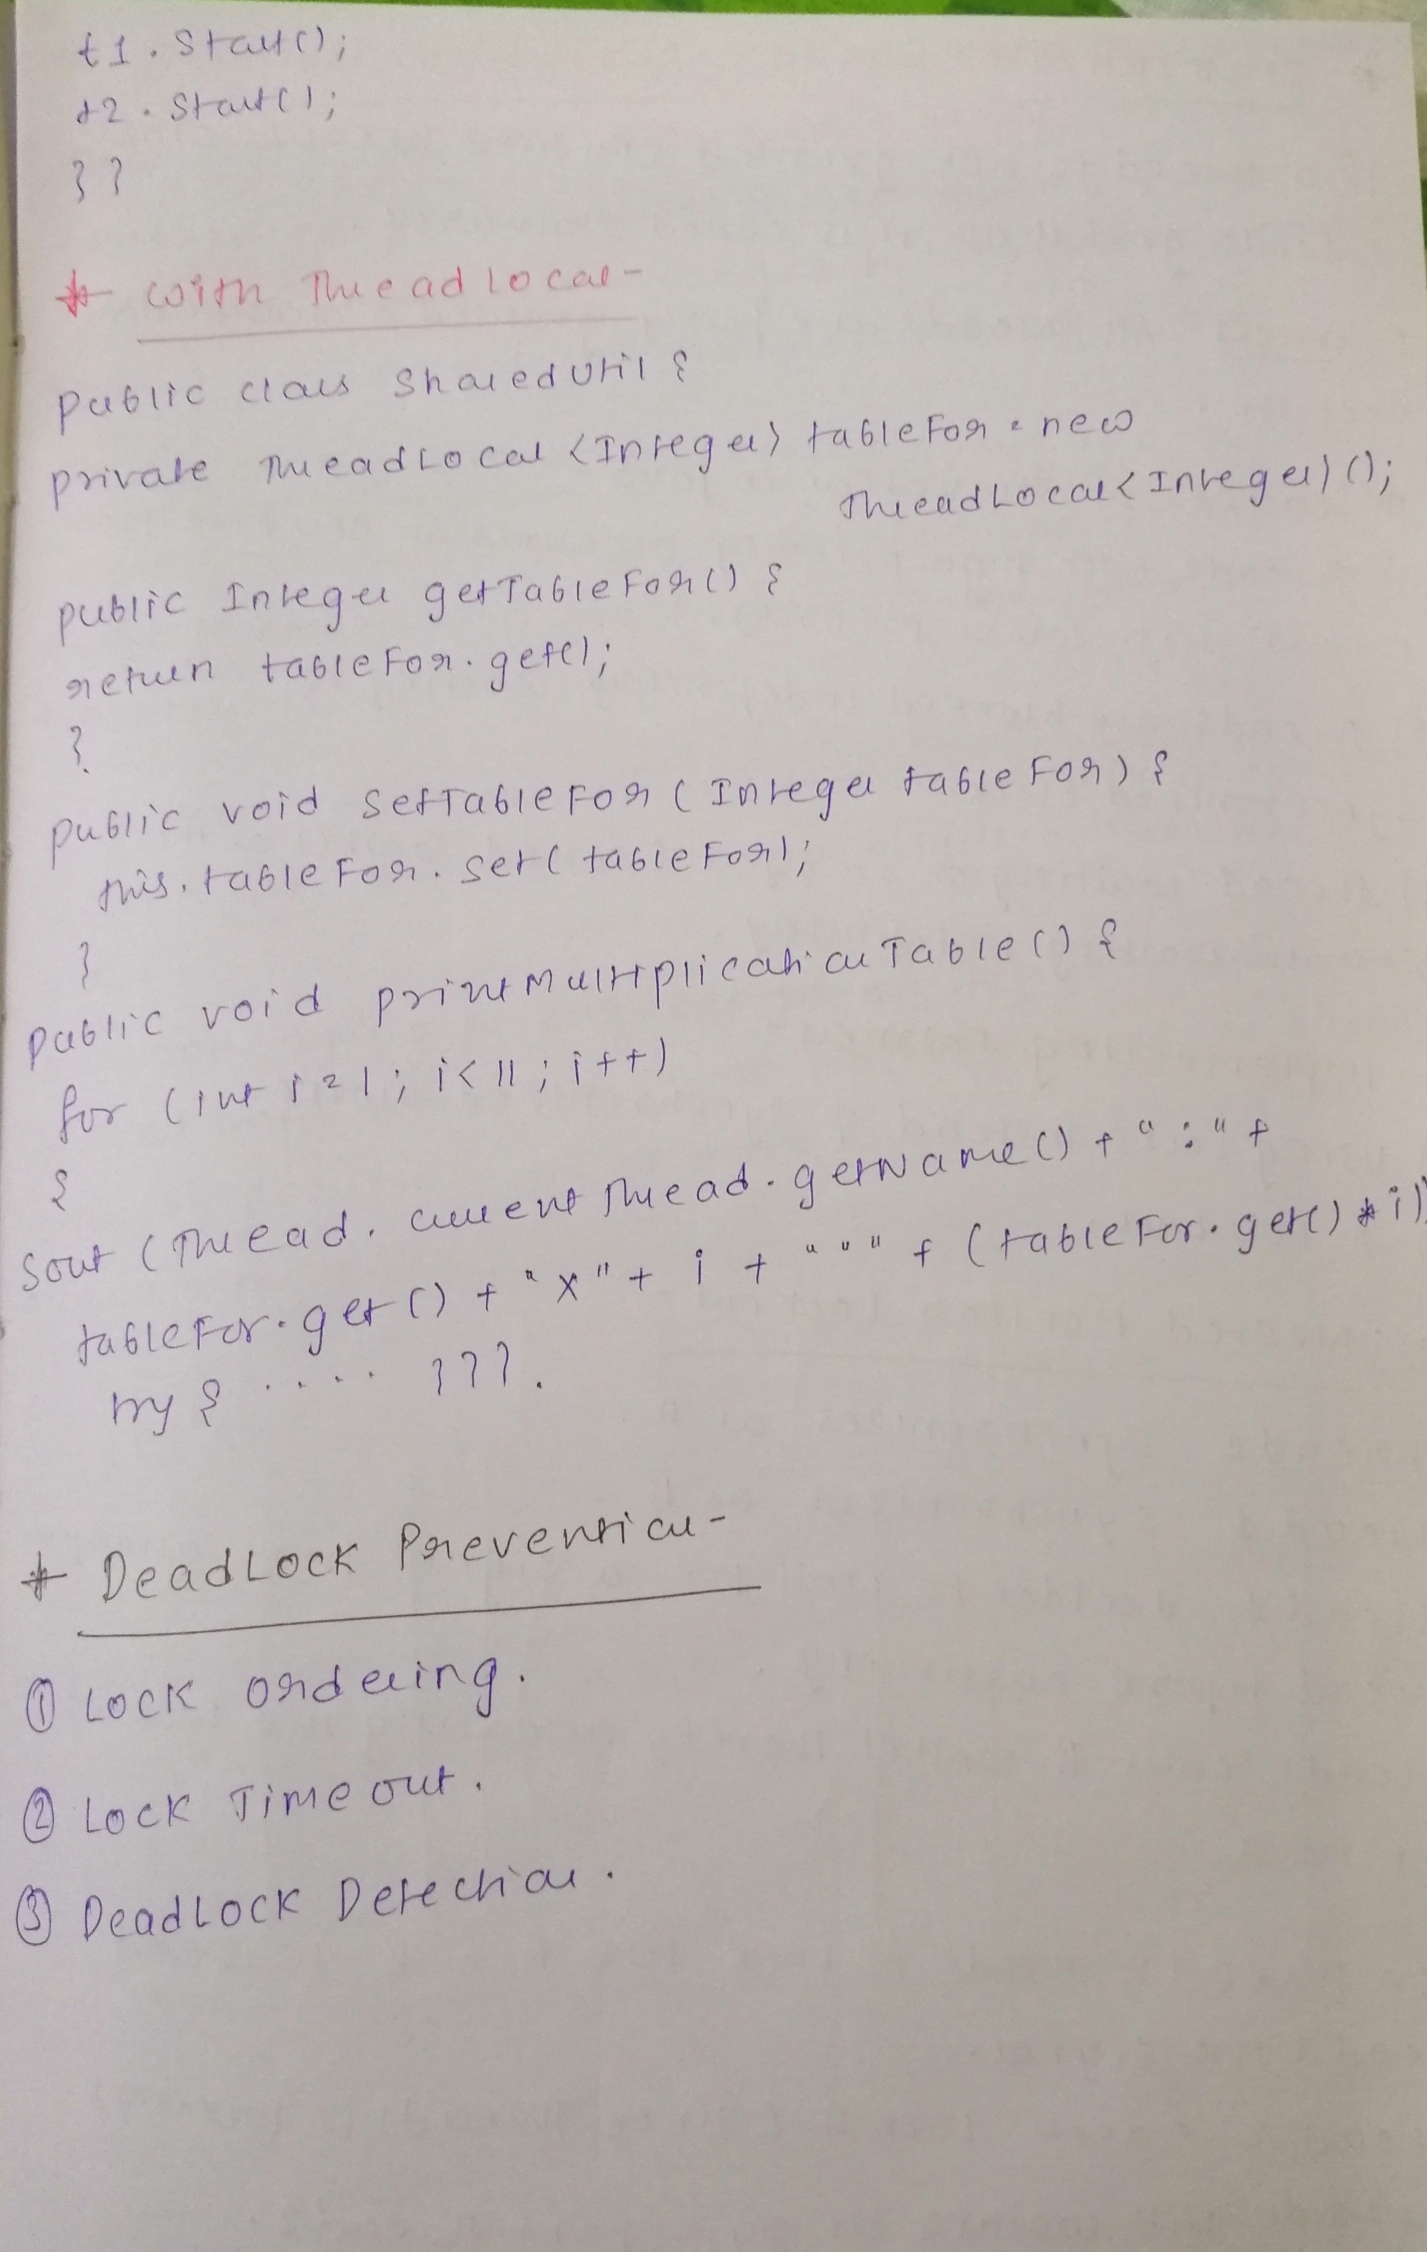 t1.start();
t2.start();
}}
* With Thread Local -
public class SharedUtil {
private ThreadLocal <Integer> tableFor = new
ThreadLocal<Integer>();
public Integer getTableFor() {
return tableFor.get();
}
public void setTableFor (Integer tableFor) {
this.tableFor.set(tableFor);
}
public void printMultiplicationTable() {
for (int i=1; i<11; i++)
{
Sout (Thread.currentThread.getName() + ":" +
tableFor.get() + "x" + i + "=" + (tableFor.get() * i))
try { .... }}}.
* DeadLock Prevention -
① Lock Ordering.
② Lock Timeout.
③ DeadLock Detection.